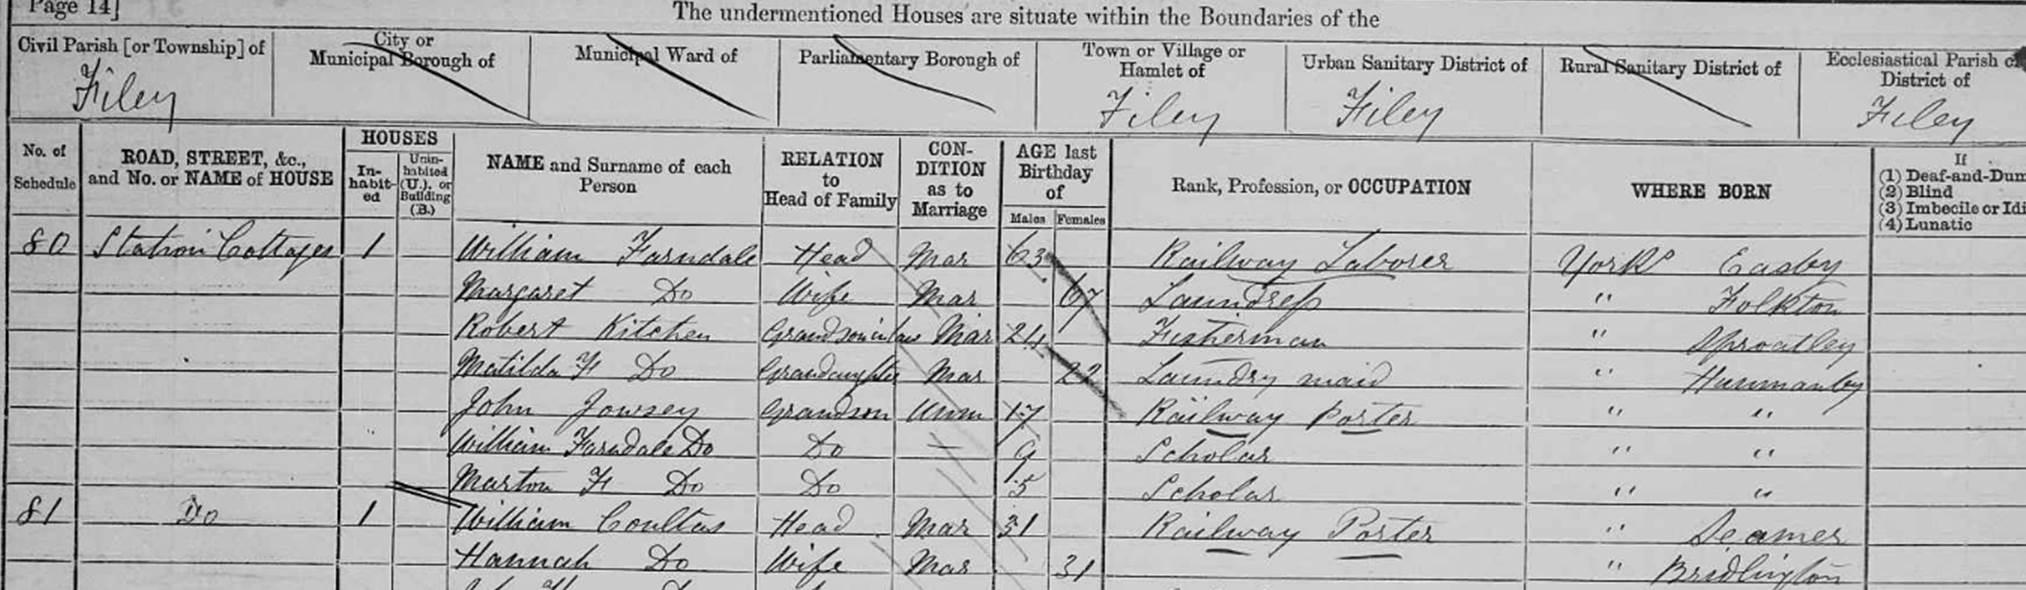 Page 14]
The undermentioned Houses are situate within the Boundaries of the
Civil Parish [or Township] of City or Municipal Borough of Municipal Ward of Parliamentary Borough of Town or Village or Hamlet of Urban Sanitary District of Rural Sanitary District of Ecclesiastical Parish or District of
Filey Filey Filey Filey
No. of Schedule ROAD, STREET, &c., and No. or NAME of HOUSE HOUSES In-habit-ed Unin-habited (U.), or Building (B.) NAME and Surname of each Person RELATION to Head of Family CON-DITION as to Marriage AGE last Birthday of Males Females Rank, Profession, or OCCUPATION WHERE BORN If (1) Deaf-and-Dum (2) Blind (3) Imbecile or Idi (4) Lunatic
80 Station Cottages 1 William Farndale Head Mar 63 Railway Laborer Yorks Easby
Margaret Do Wife Mar 67 Laundress " Folkton
Robert Kitchen Grandson in law Mar 24 Fisherman " Sproatley
Matilda F Do Grandaughter Mar 22 Laundry maid " Hunmanby
John Jowsey Grandson Unm 17 Railway Porter " "
William Farndale Do Do — 9 Scholar " "
Marton F Do Do 5 Scholar " "
81 Do 1 William Coultas Head Mar 31 Railway Porter " Seamer
Hannah Do Wife Mar 31 " Bridlington